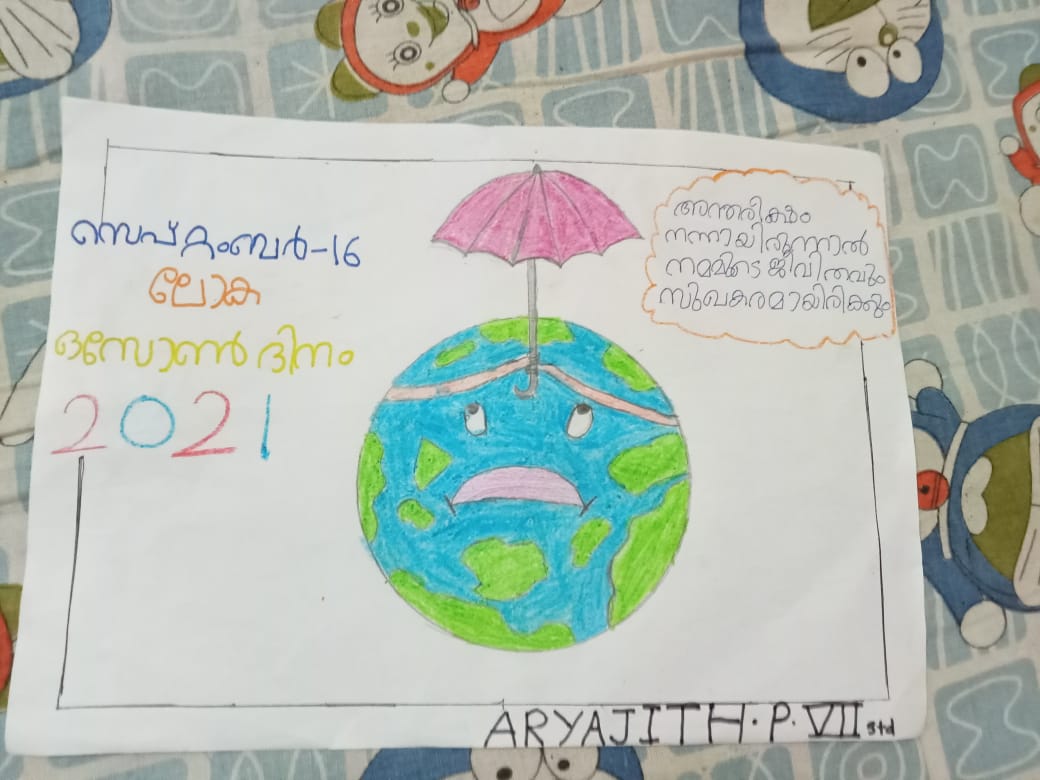 സെപ്റ്റംബർ-16
ലോക
ഓസോൺ ദിനം
2021
അന്തരിക്ഷം
നന്നായിരുന്നാൽ
നമമിടെ ജീവിതവും
സുഖകരമായിരിക്കും
ARYAJITH.P.VII std